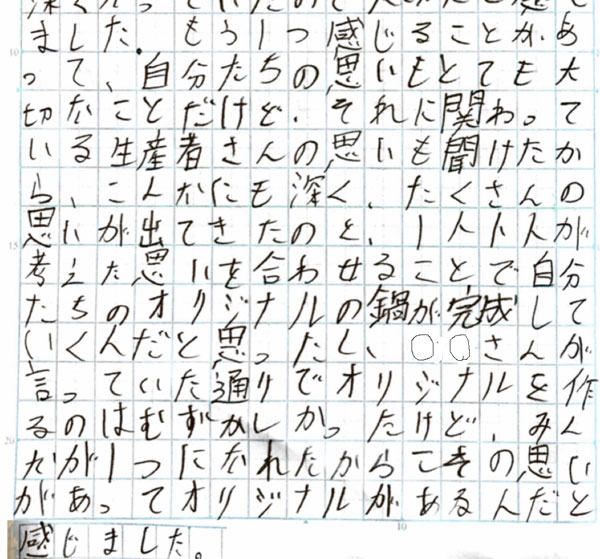 ました。もう1つ感じることがあ
って、自分たちの思いもとても大
切なことだけど、それに関わって
いる生産者さんの思いも聞けたか
ら、こんなにも深く、たくさんの
思いが出てきたのと、1人1人が
考えた思いを合わせることで自分
たちのオリジナルの鍋が完成して
いくんだと思ったし、〇〇さんが
言っていた通りでオリジナルを作
るのはむずかしかったけど、みん
なが1つになれたからこその思い
があってオリジナルがあるんだと
感じました。